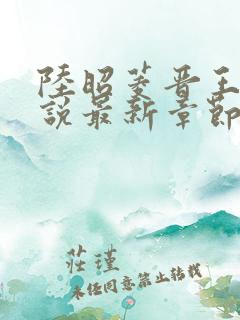 陸昭菱晋王
說最新章節
莊瑾
未經同意禁止轉載